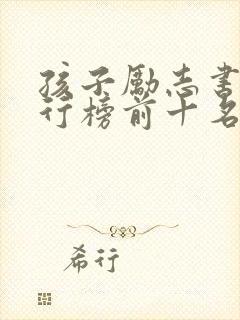 孩子励志书
行榜前十名
希行